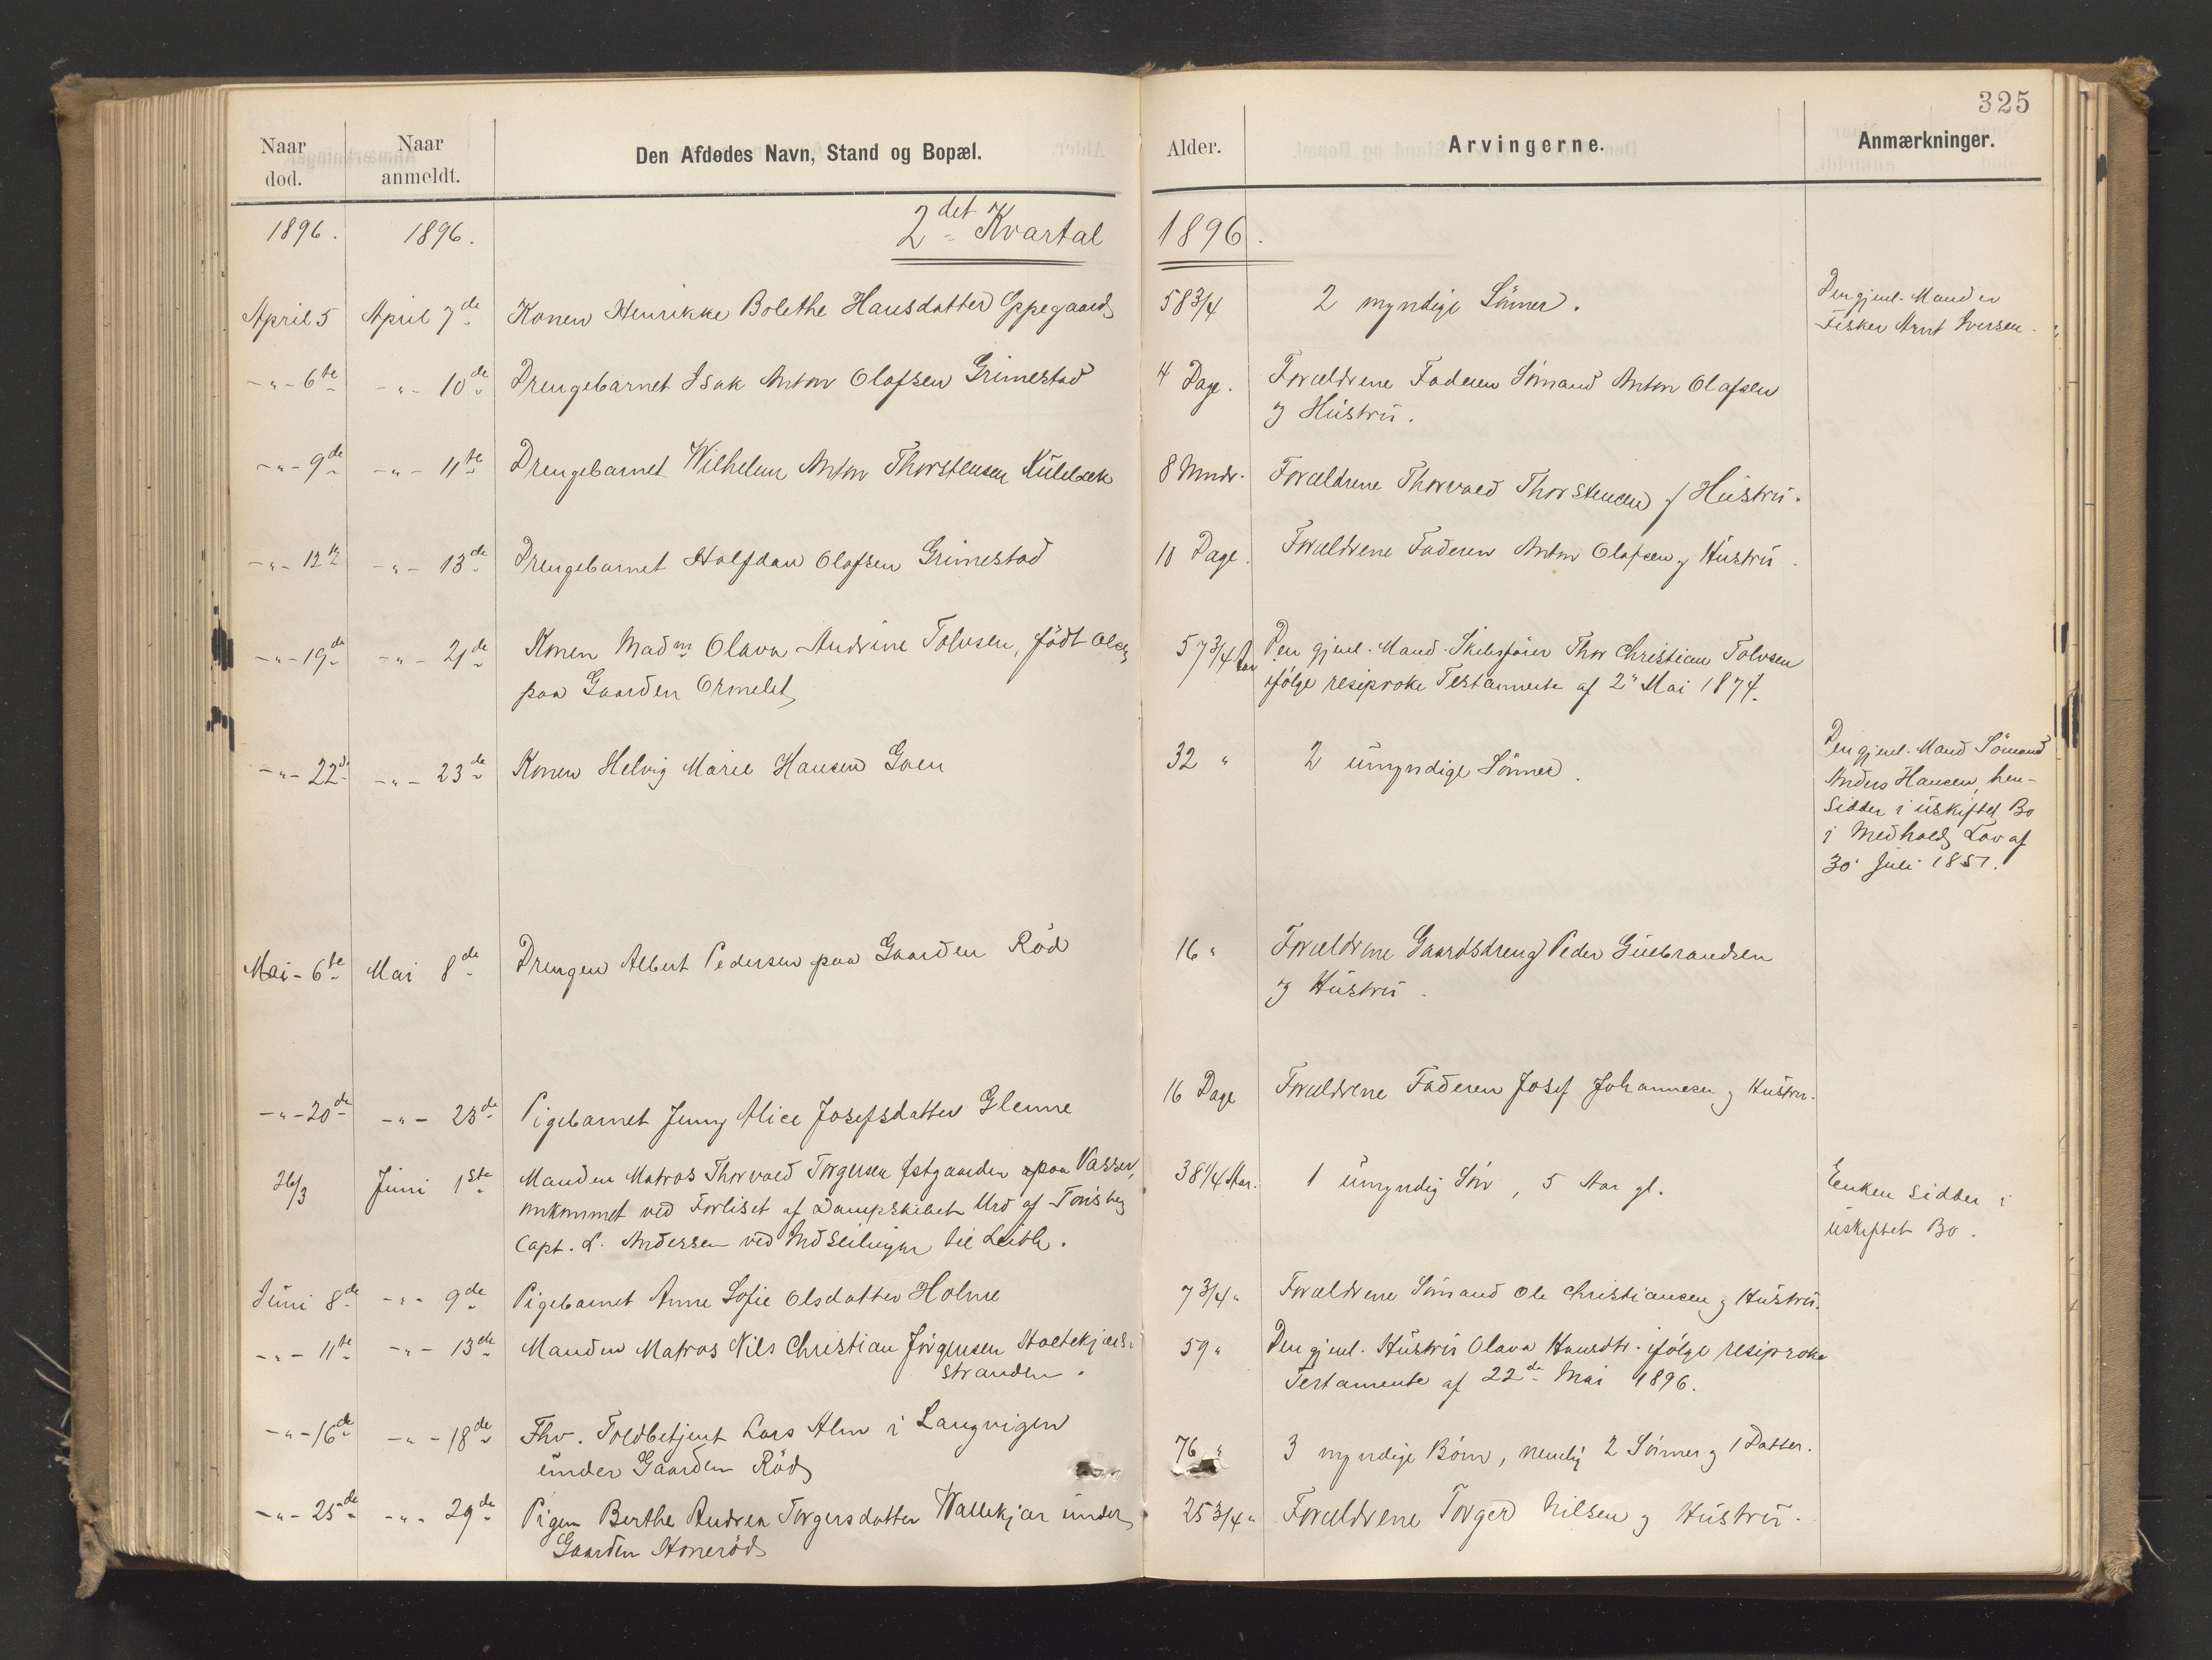 325
Naar død.
Naar anmeldt.
Den Afdødes Navn, Stand og Bopæl.
Alder.
Arvingerne.
Anmærkninger.
1896. 1896. 2det Kvartal 1896.
April 5 April 7de Konen Henrikke Bolethe Hansdatter Oppegaard 58 3/4 2 myndige Sønner. Den gjenl. Mand er
Fisker Arnt Iversen.
-"- 6te -"- 10de Drengebarnet Isak Anton Olafsen Grimestad 4 Dage. Forældrene Faderen Sömand Anton Olafsen
og Hustru.
-"- 9de -"- 11te Drengebarnet Wilhelm Anton Thorstensen 8 Mndr. Forældrene Thorvald Thorstensen og Hustru.
-"- 12te -"- 13de Drengebarnet Halfdan Olafsen Grimestad 10 Dage. Forældrene Faderen Anton Olafsen og Hustru.
-"- 19de -"- 21de Konen Madm Olava Andrine Tolvsen, födt Olsen 57 3/4 Aar Den gjenl. Mand Skibsfører Thor Christian Tolvsen
paa Gaarden Ormelet ifölge resiproke Testamente af 2" Mai 1874.
-"- 22de -"- 23de Konen Helvig Marie Hansen Goen 32 " 2 umyndige Sönner. Den gjenl. Mand Sömand
Anders Hansen, hen-
sidder i uskiftet Bo
i Medhold Lov af
30' Juli 1851.
Mai - 6te Mai 8de Drengen Albert Pedersen paa Gaarden Röd 16 " Forældrene Gaardsdreng Peder Gulbrandsen
og Hustru.
-"- 20de -"- 23de Pigebarnet Jenny Alice Josefsdatter Glenne 16 Dage Forældrene Faderen Josef Johannesen og Hustru.
26/3 Juni 1ste Manden Matros Thorvald Torgersen Østgaarden paa Vasser, 38 1/4 Aar. 1 umyndig Sön, 5 Aar gl. Enken sidder i
omkommet ved Forliset af Dampskibet Urd af Tönsberg uskiftet Bo.
Capt. L. Andersen ved Indseilingen til Leith.
Juni 8de -"- 9de Pigebarnet Anne Sofie Olsdatter Holme 7 3/4 " Forældrene Sömand Ole Christiansen og Hustru.
-"- 11te -"- 13de Manden Matros Nils Christian Jörgensen Holtekjær- 59 " Den gjenl. Hustru Olava Hansdtr. ifölge resiproke
stranden. Testamente af 22de Mai 1896.
-"- 16de -"- 18de Fhv. Toldbetjent Lars Alm i Langvigen 76 " 3 myndige Börn, nemlig 2 Sönner og 1 Datter.
under Gaarden Röd
-"- 25de -"- 29de Pigen Berthe Andrea Torgersdatter Wallekjær under 25 3/4 " Forældrene Torger Nilsen og Hustru.
Gaarden Honerød